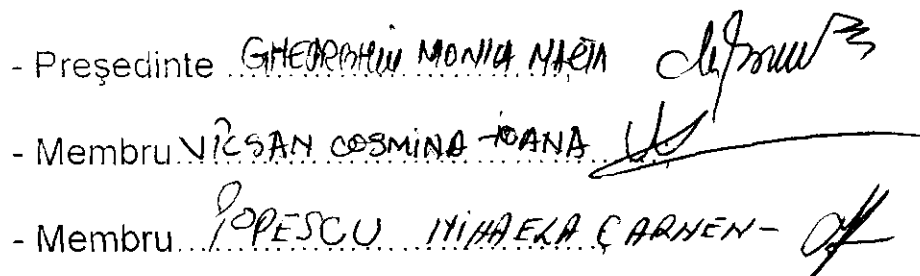 - Preşedinte GHEORGHIU MONICA MARIA
- Membru VÎLSAN COSMINA IOANA
- Membru POPESCU MIHAELA CARMEN -